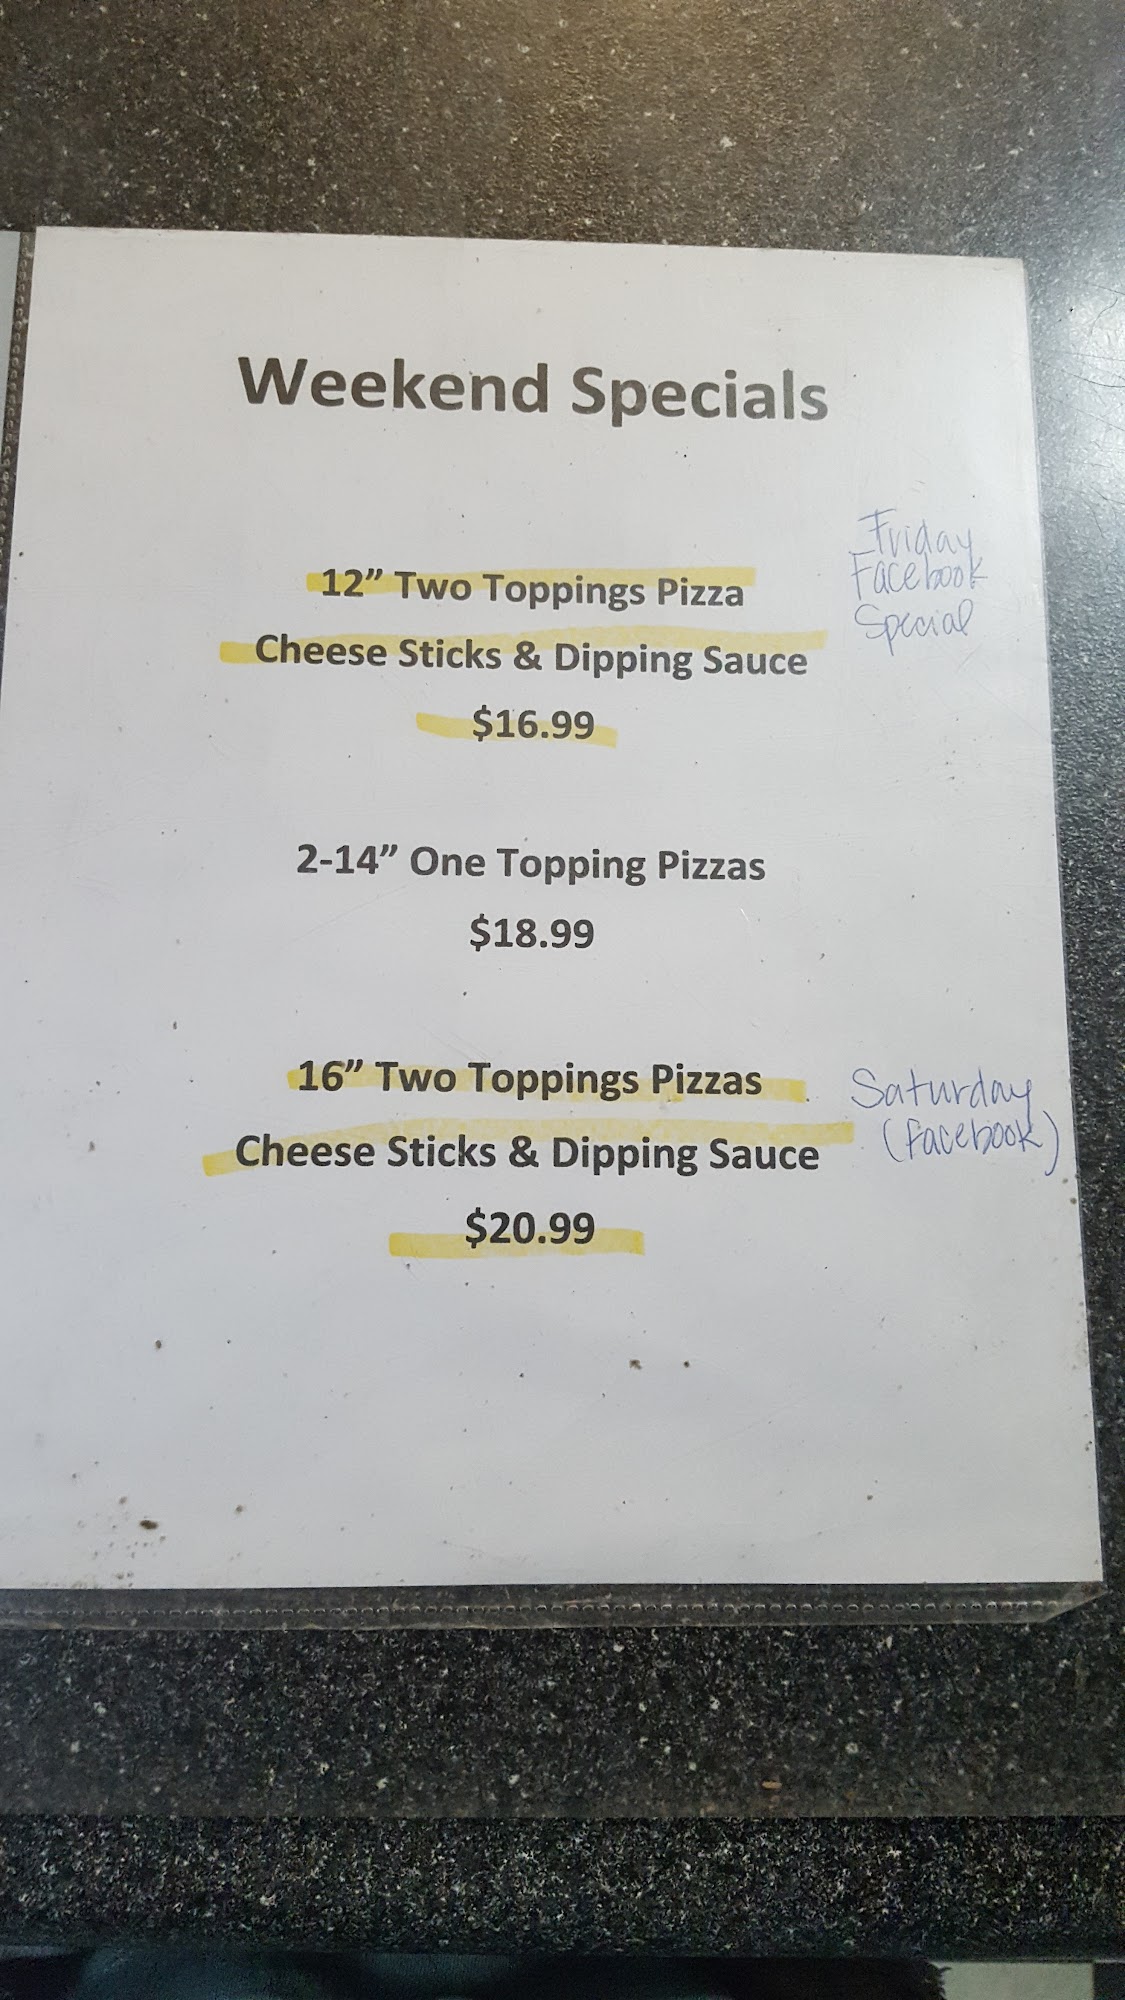 Weekend Specials
12” Two Toppings Pizza
Cheese Sticks & Dipping Sauce
$16.99
Friday
Facebook
Special
2-14” One Topping Pizzas
$18.99
16” Two Toppings Pizzas
Cheese Sticks & Dipping Sauce
$20.99
Saturday
(Facebook)